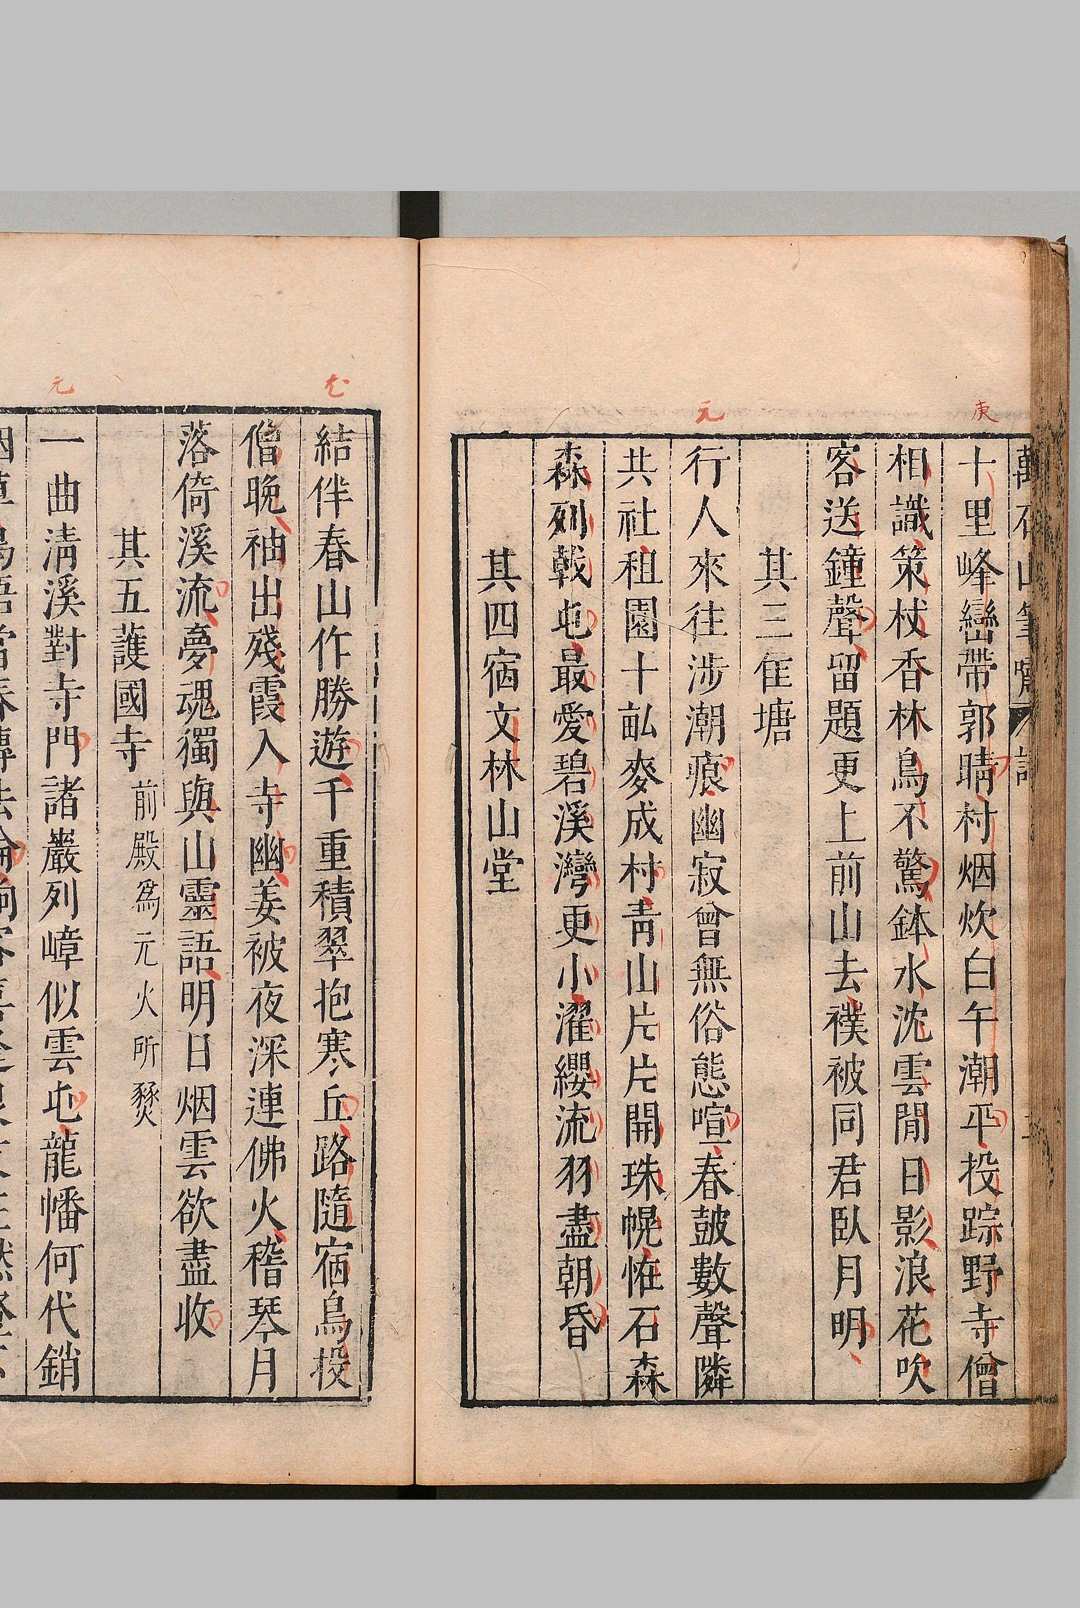 庚
十里峰巒帶郭晴村烟炊白午潮平投踪野寺僧
相識策杖香林鳥不驚鉢水沈雲閒日影浪花吹
客送鐘聲留題更上前山去襆被同君臥月明
其三隹塘
元
行人來往涉潮痕幽寂曾無俗態喧春皷數聲隣
共社租園十畝麥成村青山片片開珠幌恠石森
森列戟屯最愛碧溪灣更小濯纓流羽盡朝昏
其四宿文林山堂
結伴春山作勝遊千重積翠抱寒丘路隨宿鳥投
僧晚袖出殘霞入寺幽姜被夜深連佛火稽琴月
落倚溪流夢魂獨與山靈語明日烟雲欲盡收
其五護國寺 前殿爲元火所燹
元
一曲淸溪對寺門諸巖列嶂似雲屯龍幡何代銷